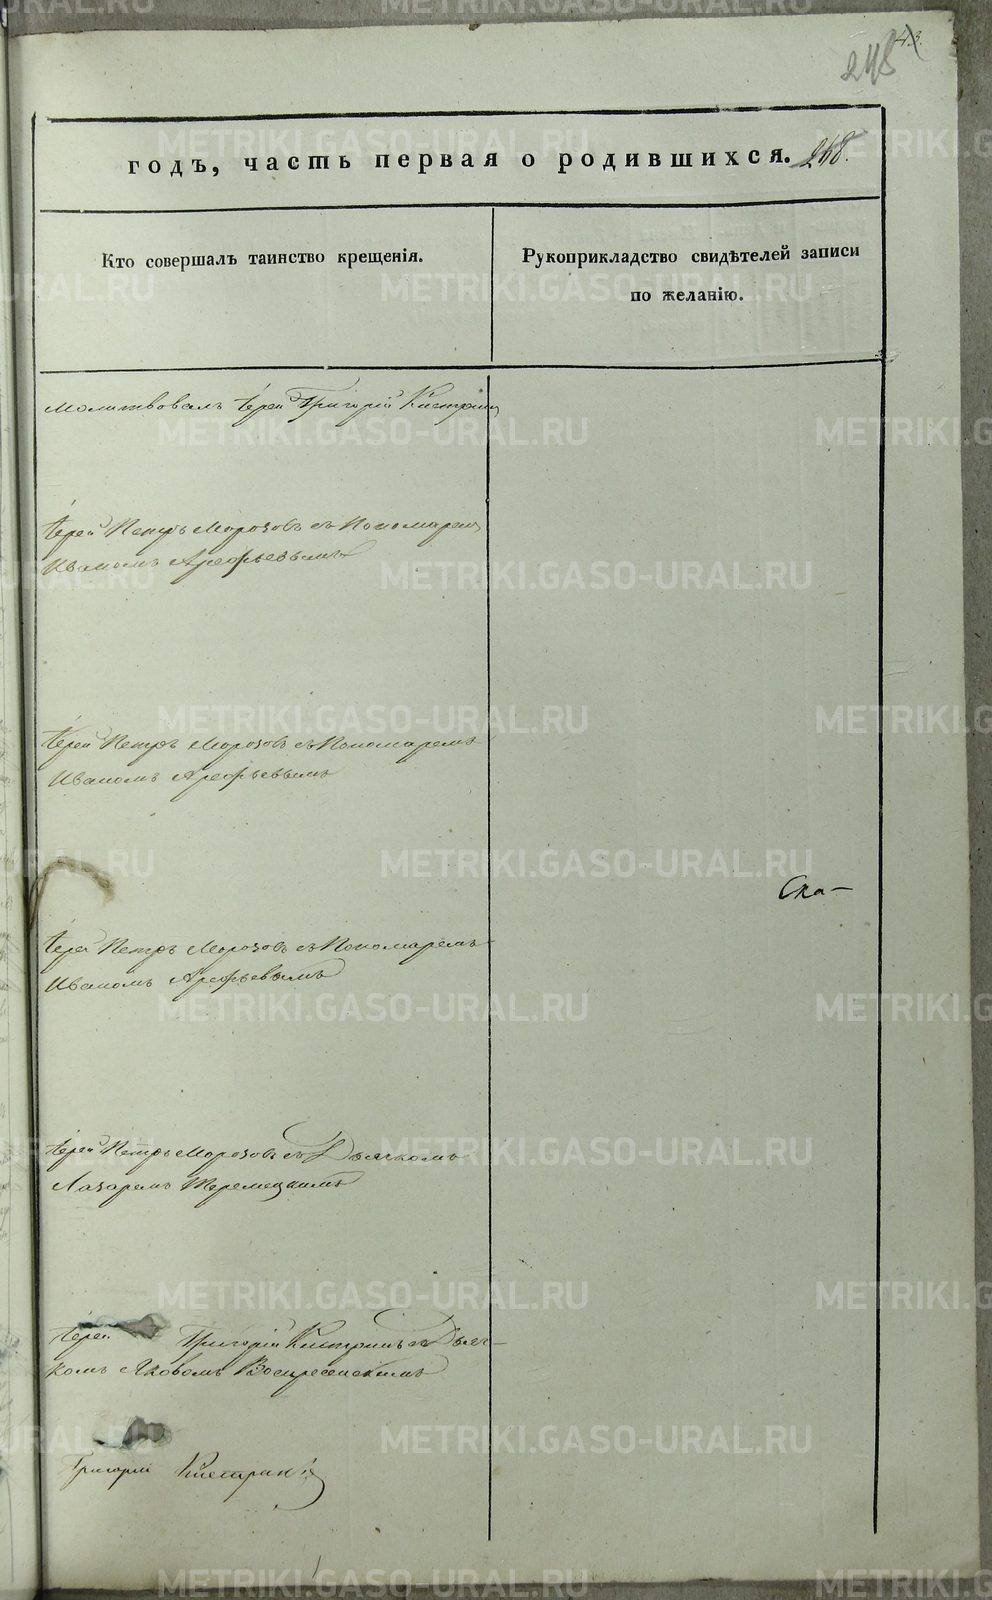 43.
248
годъ, часть первая о родившихся. 248.
Кто совершалъ таинство крещенія.
Рукоприкладство свидѣтелей записи
по желанію.
Молитвовалъ Іерей Григорій
Іерей Петръ Морозовъ съ Пономаремъ
Иваномъ Арефьевымъ
Іерей Петръ Морозовъ съ Пономаремъ
Иваномъ Арефьевымъ
Ска-
Іерей Петръ Морозовъ съ Пономаремъ
Иваномъ Арефьевымъ
Іерей Петръ Морозовъ съ Дьячкомъ
Лазаремъ
Іерей Григорій съ Дьяч-
комъ Яковомъ Воскресенскимъ
Григорій
METRIKI.GASO-URAL.RU